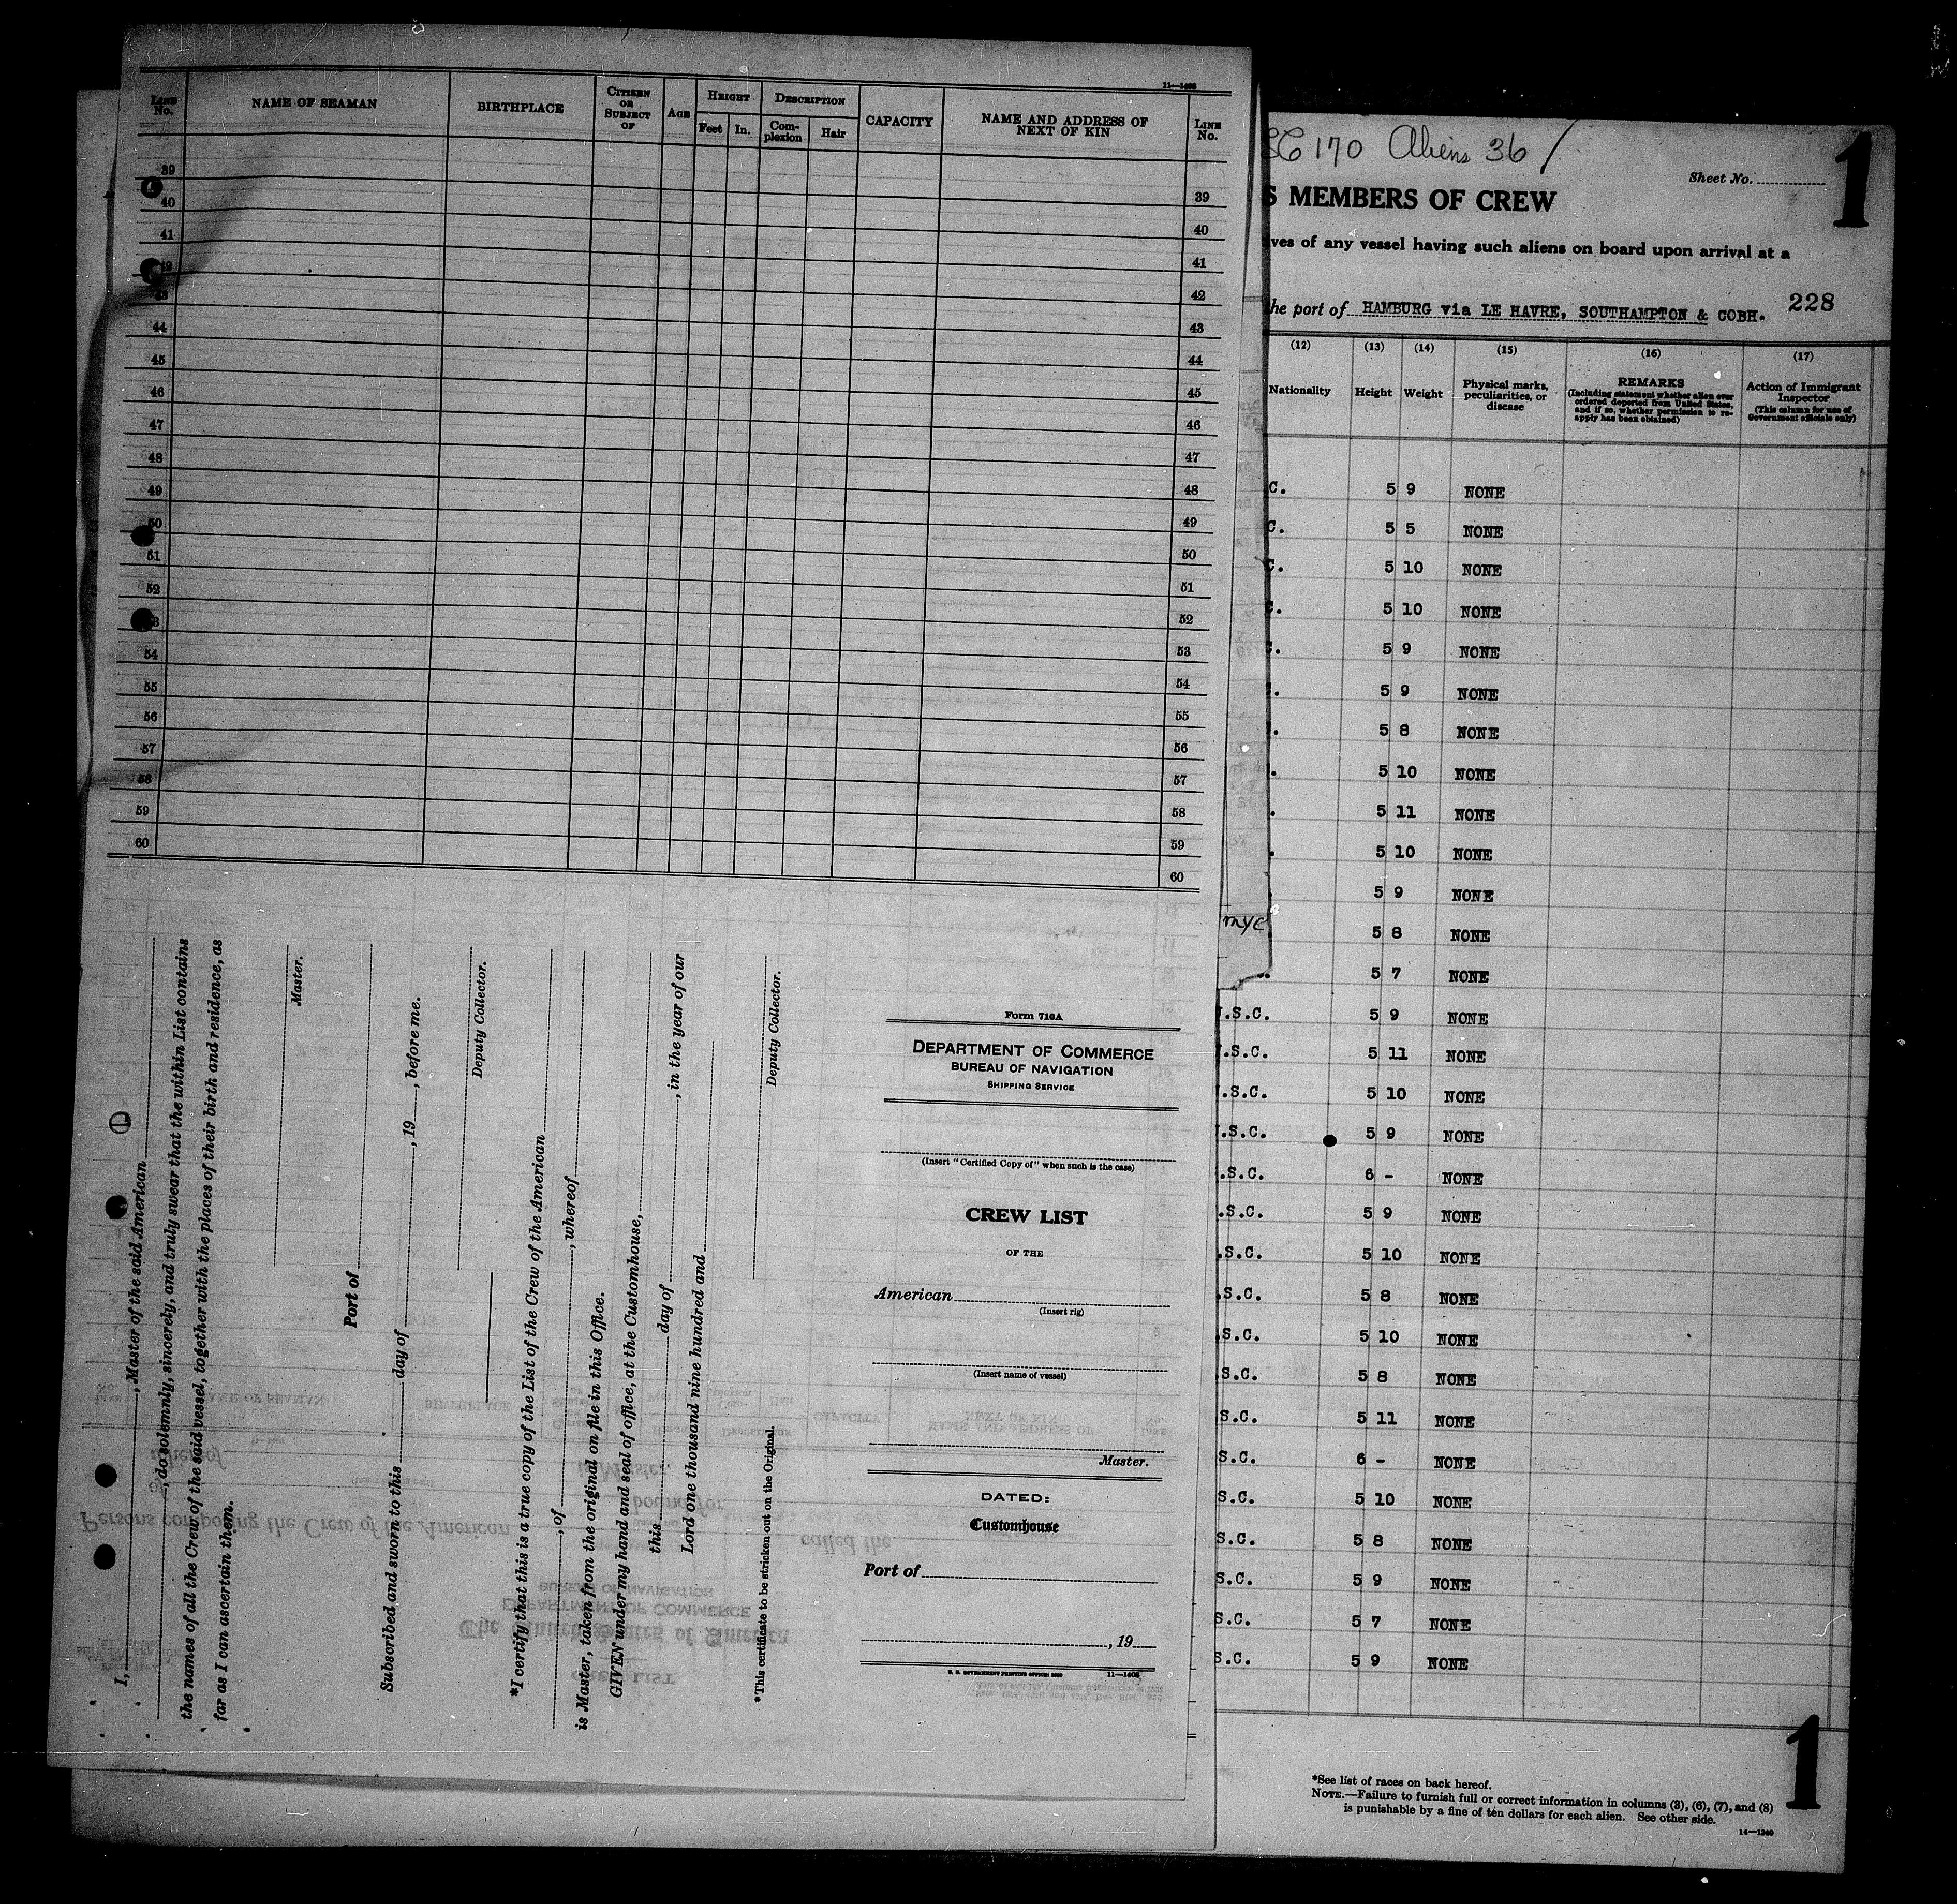 11—1408
LINE No.
NAME OF SEAMAN
BIRTHPLACE
CITIZEN OR SUBJECT OF
AGE
HEIGHT
Feet
In.
DESCRIPTION
Complexion
Hair
CAPACITY
NAME AND ADDRESS OF NEXT OF KIN
LINE No.
39
40
41
42
43
44
45
46
47
48
49
50
51
52
53
54
55
56
57
58
59
60
39
40
41
42
43
44
45
46
47
48
49
50
51
52
53
54
55
56
57
58
59
60
I, , Master of the said American
, do solemnly, sincerely, and truly swear that the within List contains
the names of all the Crew of the said vessel, together with the places of their birth and residence, as
far as I can ascertain them.
Master.
Port of
Subscribed and sworn to this day of , 19 , before me.
Deputy Collector.
*I certify that this is a true copy of the List of the Crew of the American
, of , whereof
is Master, taken from the original on file in this Office.
GIVEN under my hand and seal of office, at the Customhouse,
this day of , in the year of our
Lord one thousand nine hundred and
Deputy Collector.
*This certificate to be stricken out on the Original.
Form 710A
DEPARTMENT OF COMMERCE
BUREAU OF NAVIGATION
SHIPPING SERVICE
(Insert "Certified Copy of" when such is the case)
CREW LIST
OF THE
American
(Insert rig)
(Insert name of vessel)
Master.
DATED:
Customhouse
Port of
, 19
U. S. GOVERNMENT PRINTING OFFICE: 11—1408
170 Aliens 36 /
Sheet No.
1
S MEMBERS OF CREW
ves of any vessel having such aliens on board upon arrival at a
he port of HAMBURG via LE HAVRE, SOUTHAMPTON & COBH.
228
(12) (13) (14) (15) (16) (17)
Nationality
Height
Weight
Physical marks, peculiarities, or disease
REMARKS
(Including statement whether alien ever ordered deported from United States, and if so, whether permission to reapply has been obtained)
Action of Immigrant Inspector
(This column for use of Government officials only)
C. 5 9 NONE
C. 5 5 NONE
C. 5 10 NONE
C. 5 10 NONE
C. 5 9 NONE
. 5 9 NONE
. 5 8 NONE
. 5 10 NONE
. 5 11 NONE
. 5 10 NONE
5 9 NONE
nyc 5 8 NONE
. 5 7 NONE
.S.C. 5 9 NONE
.S.C. 5 11 NONE
.S.C. 5 10 NONE
.S.C. 5 9 NONE
.S.C. 6 - NONE
.S.C. 5 9 NONE
.S.C. 5 10 NONE
.S.C. 5 8 NONE
.S.C. 5 10 NONE
S.C. 5 8 NONE
S.C. 5 11 NONE
S.C. 6 - NONE
S.C. 5 10 NONE
S.C. 5 8 NONE
S.C. 5 9 NONE
S.C. 5 7 NONE
S.C. 5 9 NONE
1
*See list of races on back hereof.
NOTE.—Failure to furnish full or correct information in columns (3), (6), (7), and (8)
is punishable by a fine of ten dollars for each alien. See other side.
14—1240